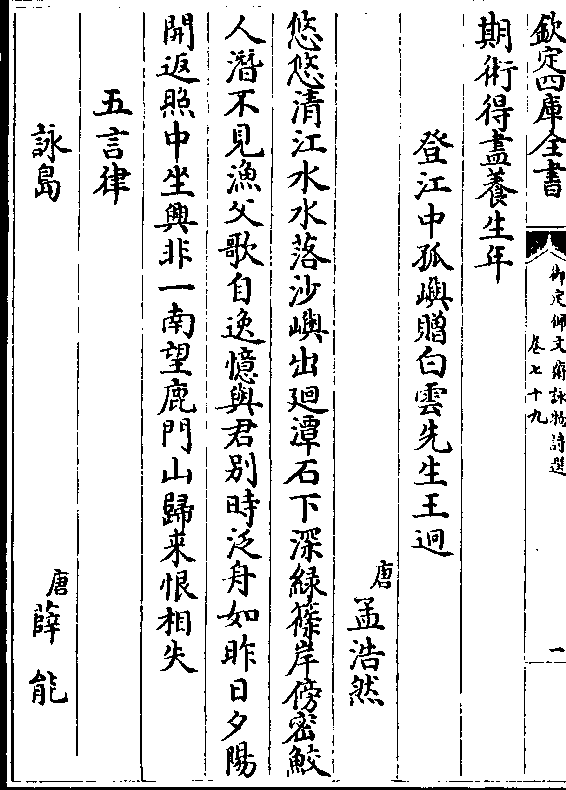 欽定四庫全書
御定佩文齋詠物詩選
卷七十九
一
期術得盡養生年
登江中孤嶼贈白雲先生王迥
唐孟浩然
悠悠清江水水落沙嶼出廻潭石下深緑篠岸傍密鮫
人潛不見漁父歌自逸憶與君别時泛舟如昨日夕陽
開返照中坐興非一南望鹿門山歸来恨相失
五言律
詠島
唐薛能